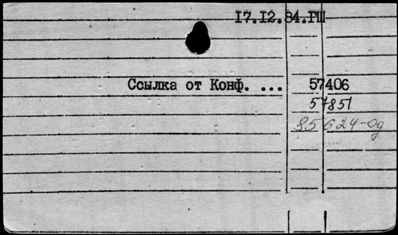 17.12.84.ГШ
Ссылка от Конф. ... 57406
57851
85624-Од